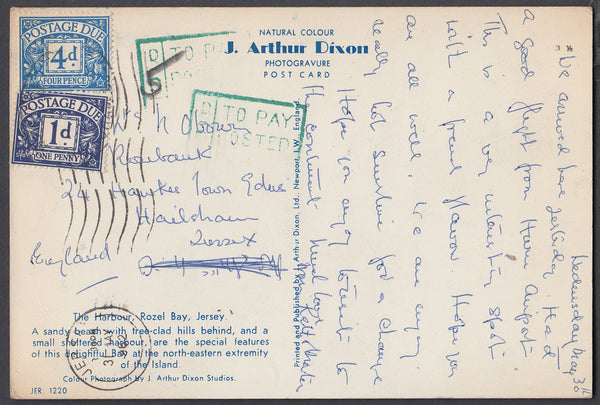 POSTAGE DUE
4d.
FOUR PENCE
POSTAGE DUE
1d
ONE PENNY
D TO PAY
D TO PAY
POSTED
5
NATURAL COLOUR
J. Arthur Dixon
PHOTOGRAVURE
POST CARD
Mrs N Osborn
Rosebank
24 Hawkes Town
Hailsham
Sussex
England
The Harbour, Rozel Bay, Jersey.
A sandy beach with tree-clad hills behind, and a
small sheltered harbour, are the special features
of this delightful Bay at the north-eastern extremity
of the Island.
Colour Photograph by J. Arthur Dixon Studios.
JER. 1220
JERSEY
Printed and Published by J. Arthur Dixon, Ltd., Newport, I.W., England.
Wednesday May 30th
We arrived here yesterday. Had
a good flight from Hurn Airport.
This is a very interesting spot
with a French flavour. Hope you
are all well. We are enjoying
really hot sunshine for a change
Hope you enjoy the visit to
the continent. Much love